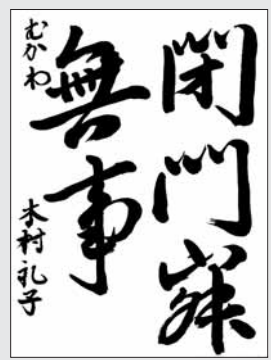 閉門寂
無事
むかわ 木村礼子